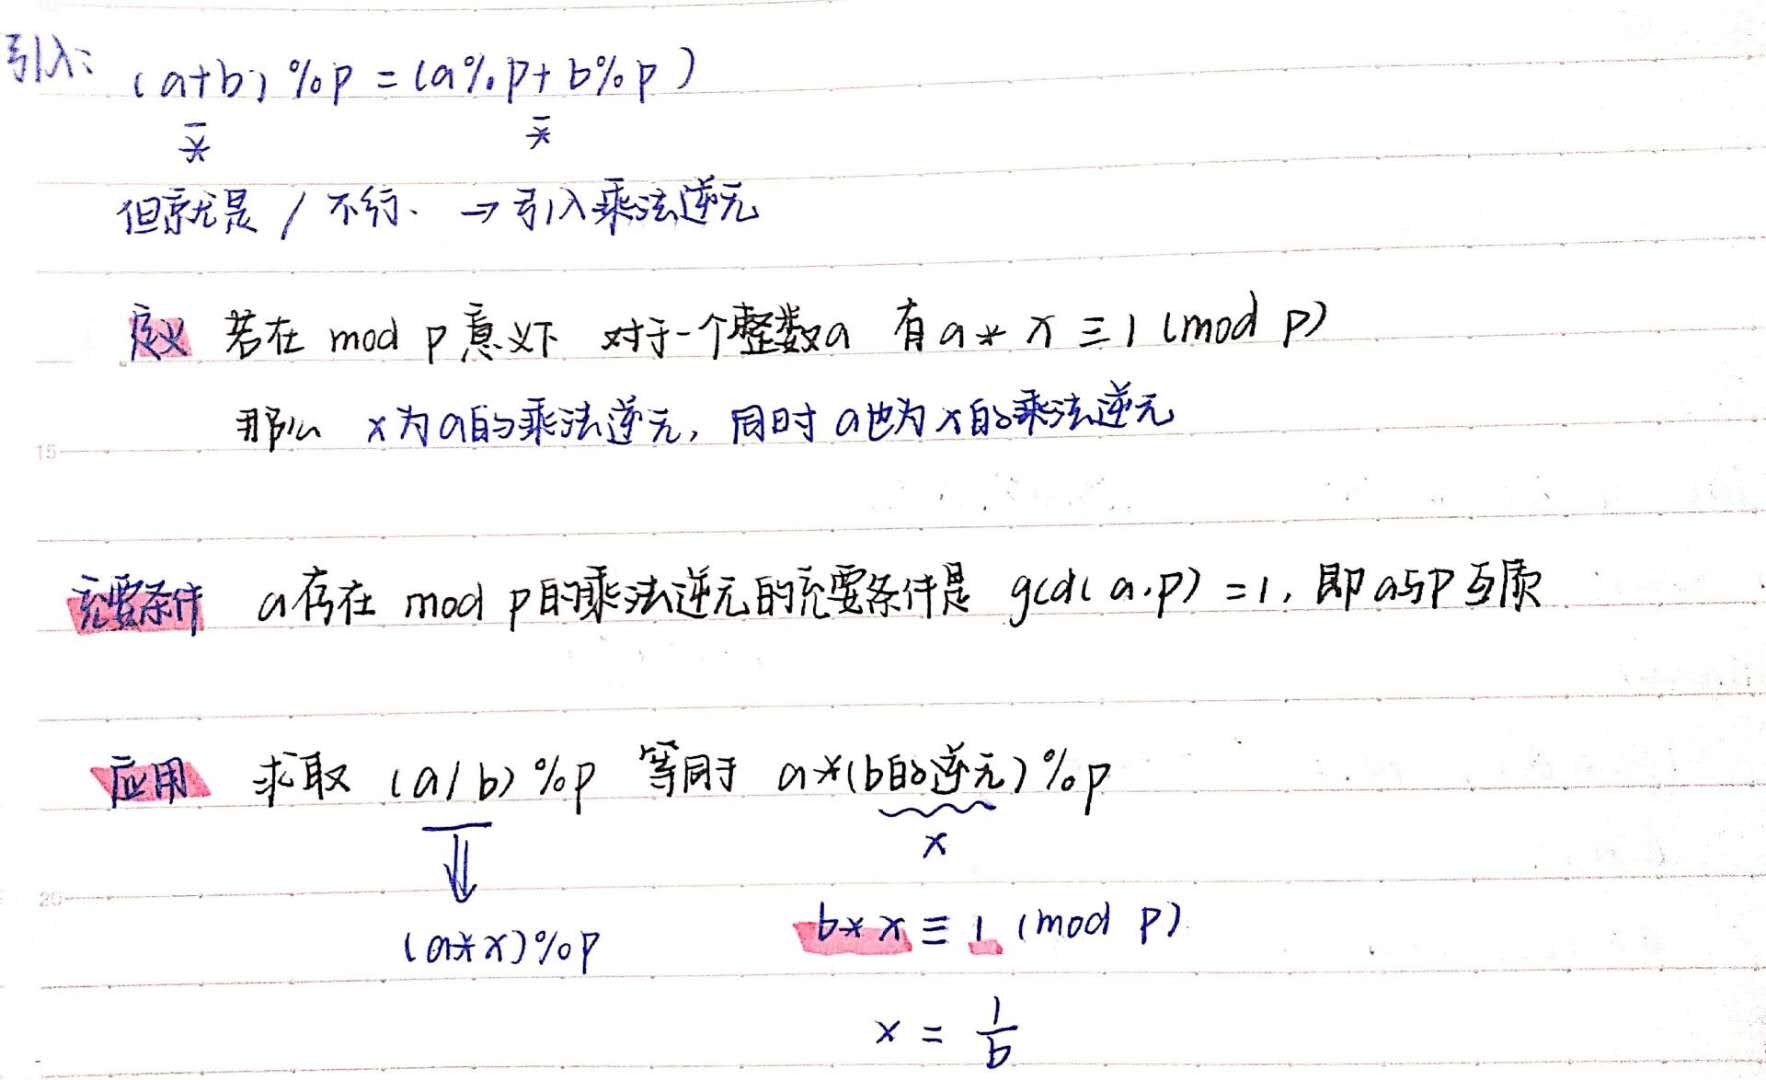 引入: (a+b) %p = (a%p+b%p)
- -
* *
但就是 / 不行. → 引入乘法逆元
定义 若在 mod p 意义下 对于一个整数a 有 a * x ≡ 1 (mod p)
15
那么 x为a的乘法逆元, 同时 a也为x的乘法逆元
充要条件 a存在 mod p的乘法逆元的充要条件是 gcd(a.p) = 1, 即 a与p互质
应用 求取 (a/b) %p 等同于 a*(b的逆元) %p
⇓ x
20
(a*x)%p b* x ≡ 1 (mod p)
x = 1/b